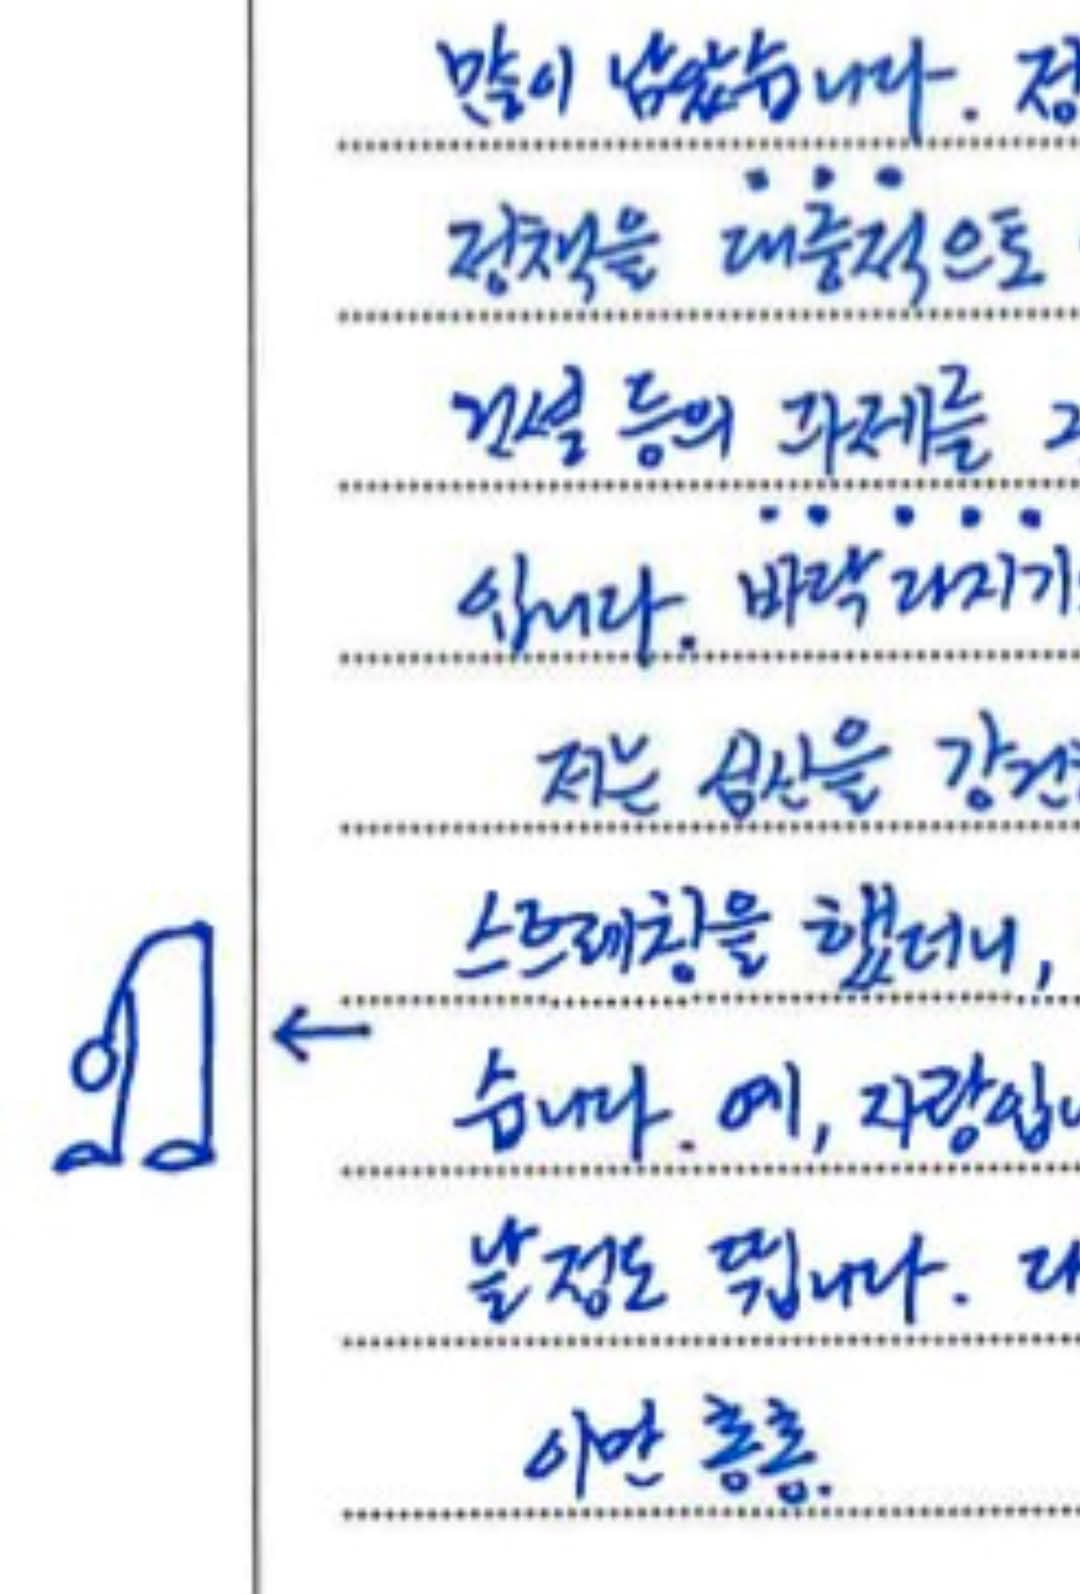 많이 남았습니다. 정
정책을 대중적으로
건설 등의 과제를
입니다. 바락 라지기
저는 심신을 강건
스트레칭을 했더니,
습니다. 예, 자랑입니
날 정도 뜁니다.
이만 총총.